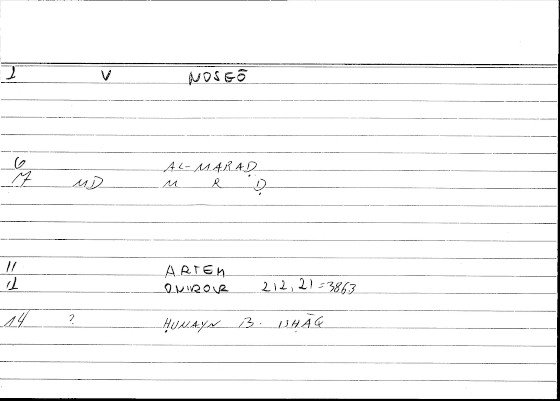 1 V NOSEŌ
6 AL-MARAḌ
7 MD M R Ḍ
11 ARTEM
12 ONIROCR 212,21=3863
14 ? ḤUNAYN B. ISḤĀQ